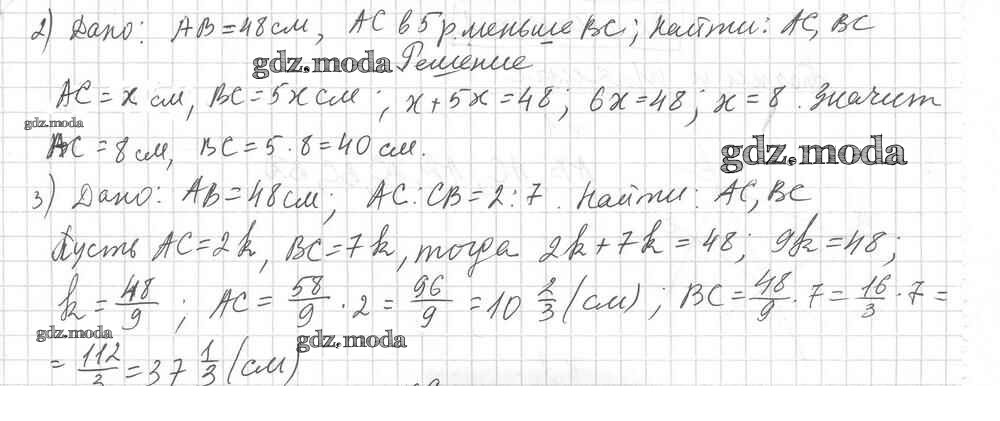 2) Дано: AB=48см, AC в 5 р меньше BC; Найти: AC, BC
gdz.moda Решение
AC = x см, BC=5x см ; x+5x=48; 6x=48; x=8. Значит
gdz.moda
AC = 8 см, BC = 5·8=40 см.
gdz.moda
3) Дано: AB=48см; AC:CB=2:7. Найти: AC, BC
Пусть AC=2k, BC=7k, тогда 2k+7k=48; 9k=48;
k = 48/9 ; AC = 58/9 · 2 = 96/9 = 10 2/3 (см) ; BC = 48/9 · 7 = 16/3 · 7 =
gdz.moda gdz.moda
= 112/3 = 37 1/3 (см)